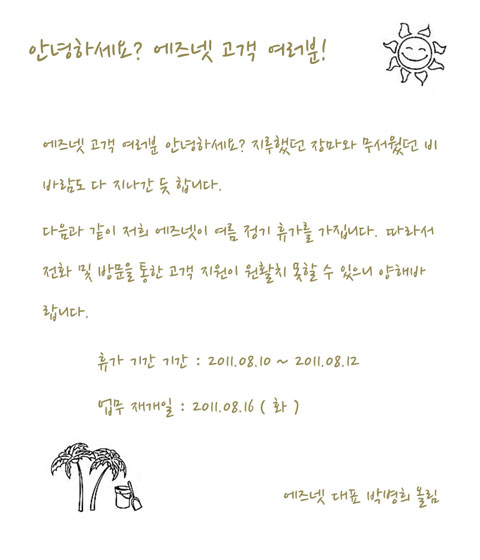 안녕하세요? 에즈넷 고객 여러분!
에즈넷 고객 여러분 안녕하세요? 지루했던 장마와 무서웠던 비
바람도 다 지나간 듯 합니다.
다음과 같이 저희 에즈넷이 여름 정기 휴가를 가집니다. 따라서
전화 및 방문을 통한 고객 지원이 원활치 못할 수 있으니 양해바
랍니다.
휴가 기간 기간 : 2011.08.10 ~ 2011.08.12
업무 재개일 : 2011.08.16 ( 화 )
에즈넷 대표 박병희 올림